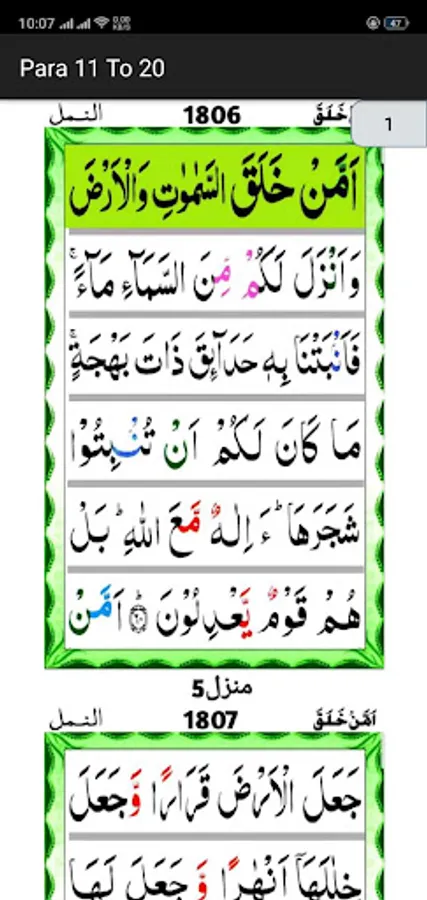 10:07 0.00 KB/S 47
Para 11 To 20
النمل 1806 خَلَقَ
1
اَمَّنْ خَلَقَ السَّمٰوٰتِ وَالْاَرْضَ
وَاَنْزَلَ لَكُمْ مِّنَ السَّمَآءِ مَآءً ۚ
فَاَنْۢبَتْنَا بِهٖ حَدَآئِقَ ذَاتَ بَهْجَةٍ ۚ
مَا كَانَ لَكُمْ اَنْ تُنْۢبِتُوْا
شَجَرَهَا ؕ ءَ اِلٰهٌ مَّعَ اللّٰهِ ؕ بَلْ
هُمْ قَوْمٌ يَّعْدِلُوْنَ ؕ۝۶۰ اَمَّنْ
منزل5
النمل 1807 اَمَّنْ خَلَقَ
جَعَلَ الْاَرْضَ قَرَارًا وَّجَعَلَ
خِلٰلَهَاۤ اَنْهٰرًا وَّ جَعَلَ لَهَا